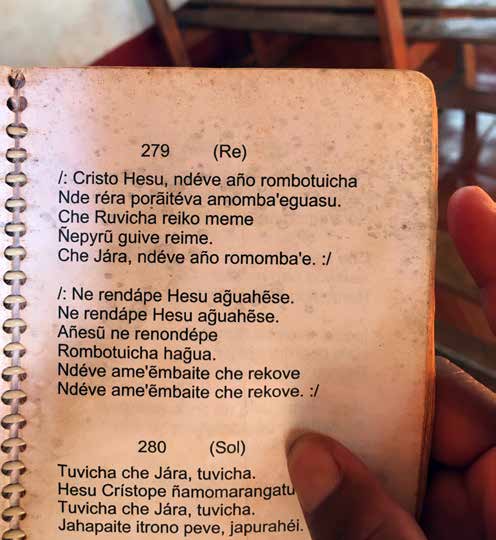 279 (Re)
/: Cristo Hesu, ndéve año rombotuicha
Nde réra porãitéva amomba'eguasu.
Che Ruvicha reiko meme
Ñepyrũ guive reime.
Che Jára, ndéve año romomba'e. :/
/: Ne rendápe Hesu ag̃uahẽse.
Ne rendápe Hesu ag̃uahẽse.
Añesũ ne renondépe
Rombotuicha hag̃ua.
Ndéve ame'ẽmbaite che rekove
Ndéve ame'ẽmbaite che rekove. :/
280 (Sol)
Tuvicha che Jára, tuvicha.
Hesu Crístope ñamomarangatu
Tuvicha che Jára, tuvicha.
Jahapaite itrono peve, japurahéi.